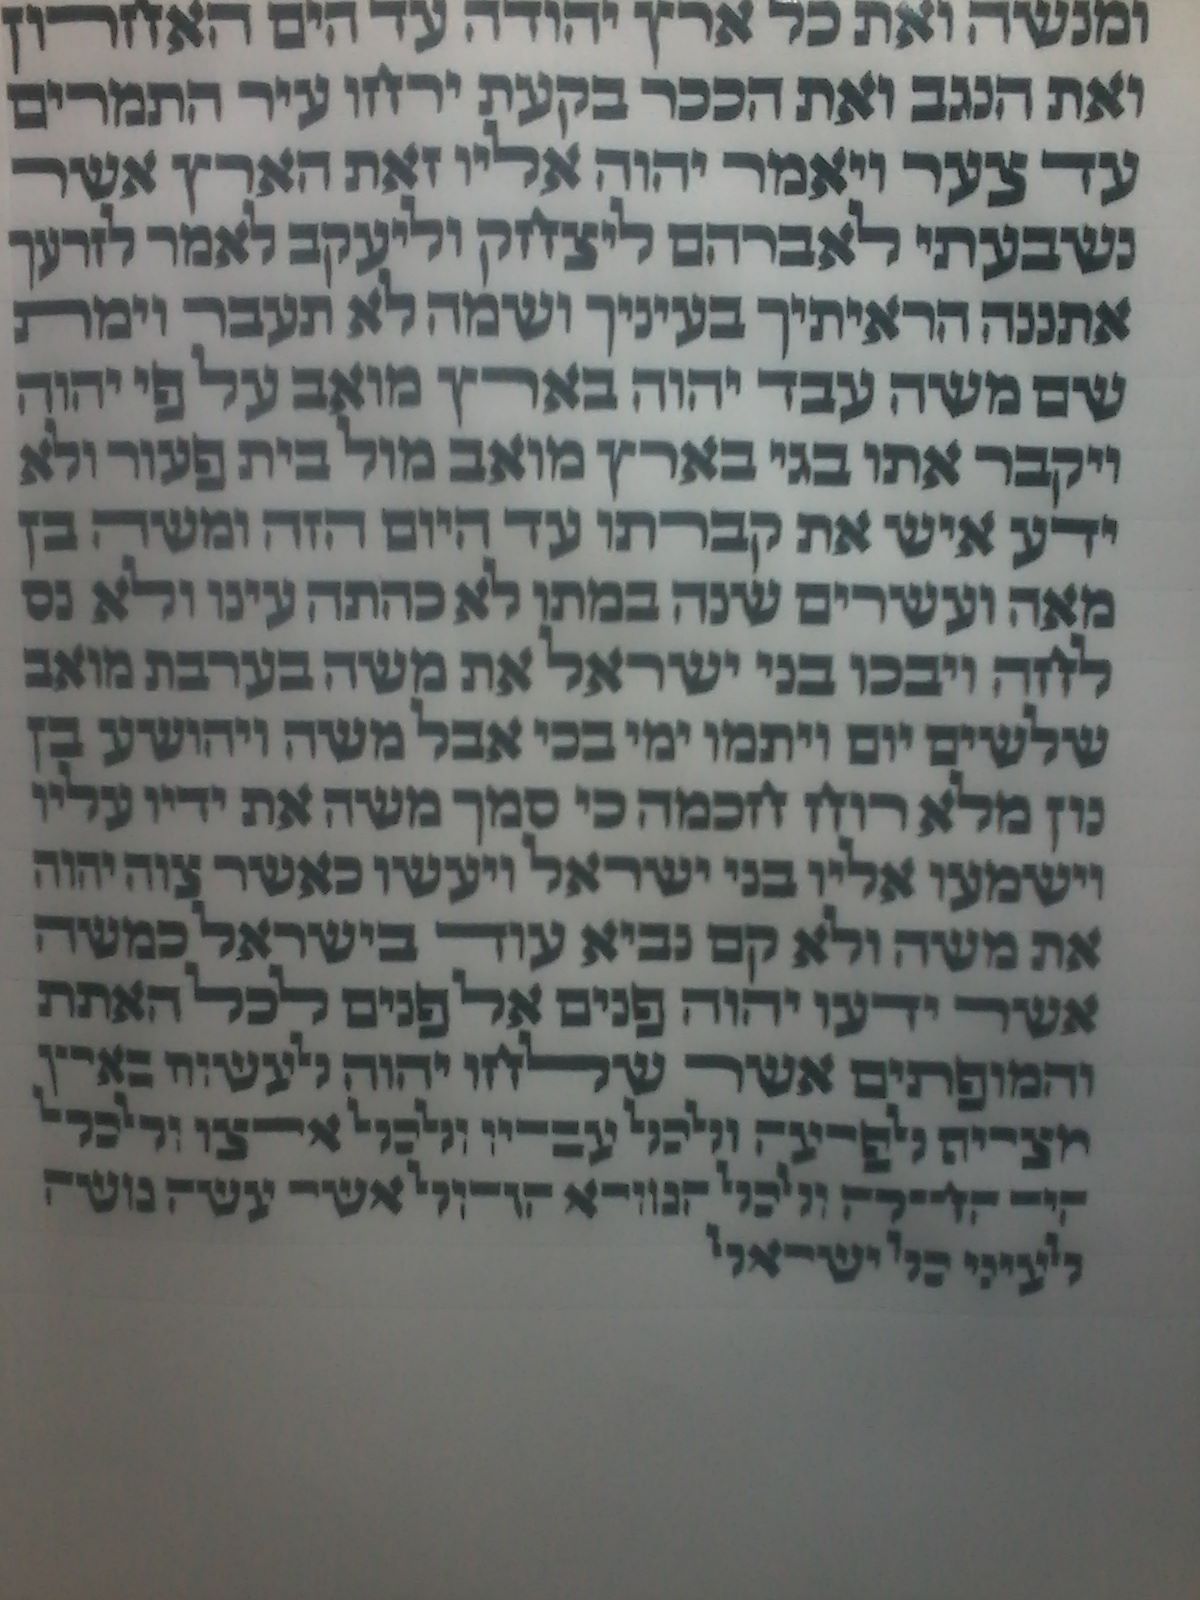 ומנשה ואת כל ארץ יהודה עד הים האחרון
ואת הנגב ואת הככר בקעת ירחו עיר התמרים
עד צער ויאמר יהוה אליו זאת הארץ אשר
נשבעתי לאברהם ליצחק וליעקב לאמר לזרעך
אתננה הראיתיך בעיניך ושמה לא תעבר וימת
שם משה עבד יהוה בארץ מואב על פי יהוה
ויקבר אתו בגי בארץ מואב מול בית פעור ולא
ידע איש את קברתו עד היום הזה ומשה בן
מאה ועשרים שנה במתו לא כהתה עינו ולא נס
לחה ויבכו בני ישראל את משה בערבת מואב
שלשים יום ויתמו ימי בכי אבל משה ויהושע בן
נון מלא רוח חכמה כי סמך משה את ידיו עליו
וישמעו אליו בני ישראל ויעשו כאשר צוה יהוה
את משה ולא קם נביא עוד בישראל כמשה
אשר ידעו יהוה פנים אל פנים לכל האתת
והמופתים אשר שלחו יהוה לעשות בארץ
מצרים לפרעה ולכל עבדיו ולכל ארצו ולכל
היד החזקה ולכל המורא הגדול אשר עשה משה
לעיני כל ישראל